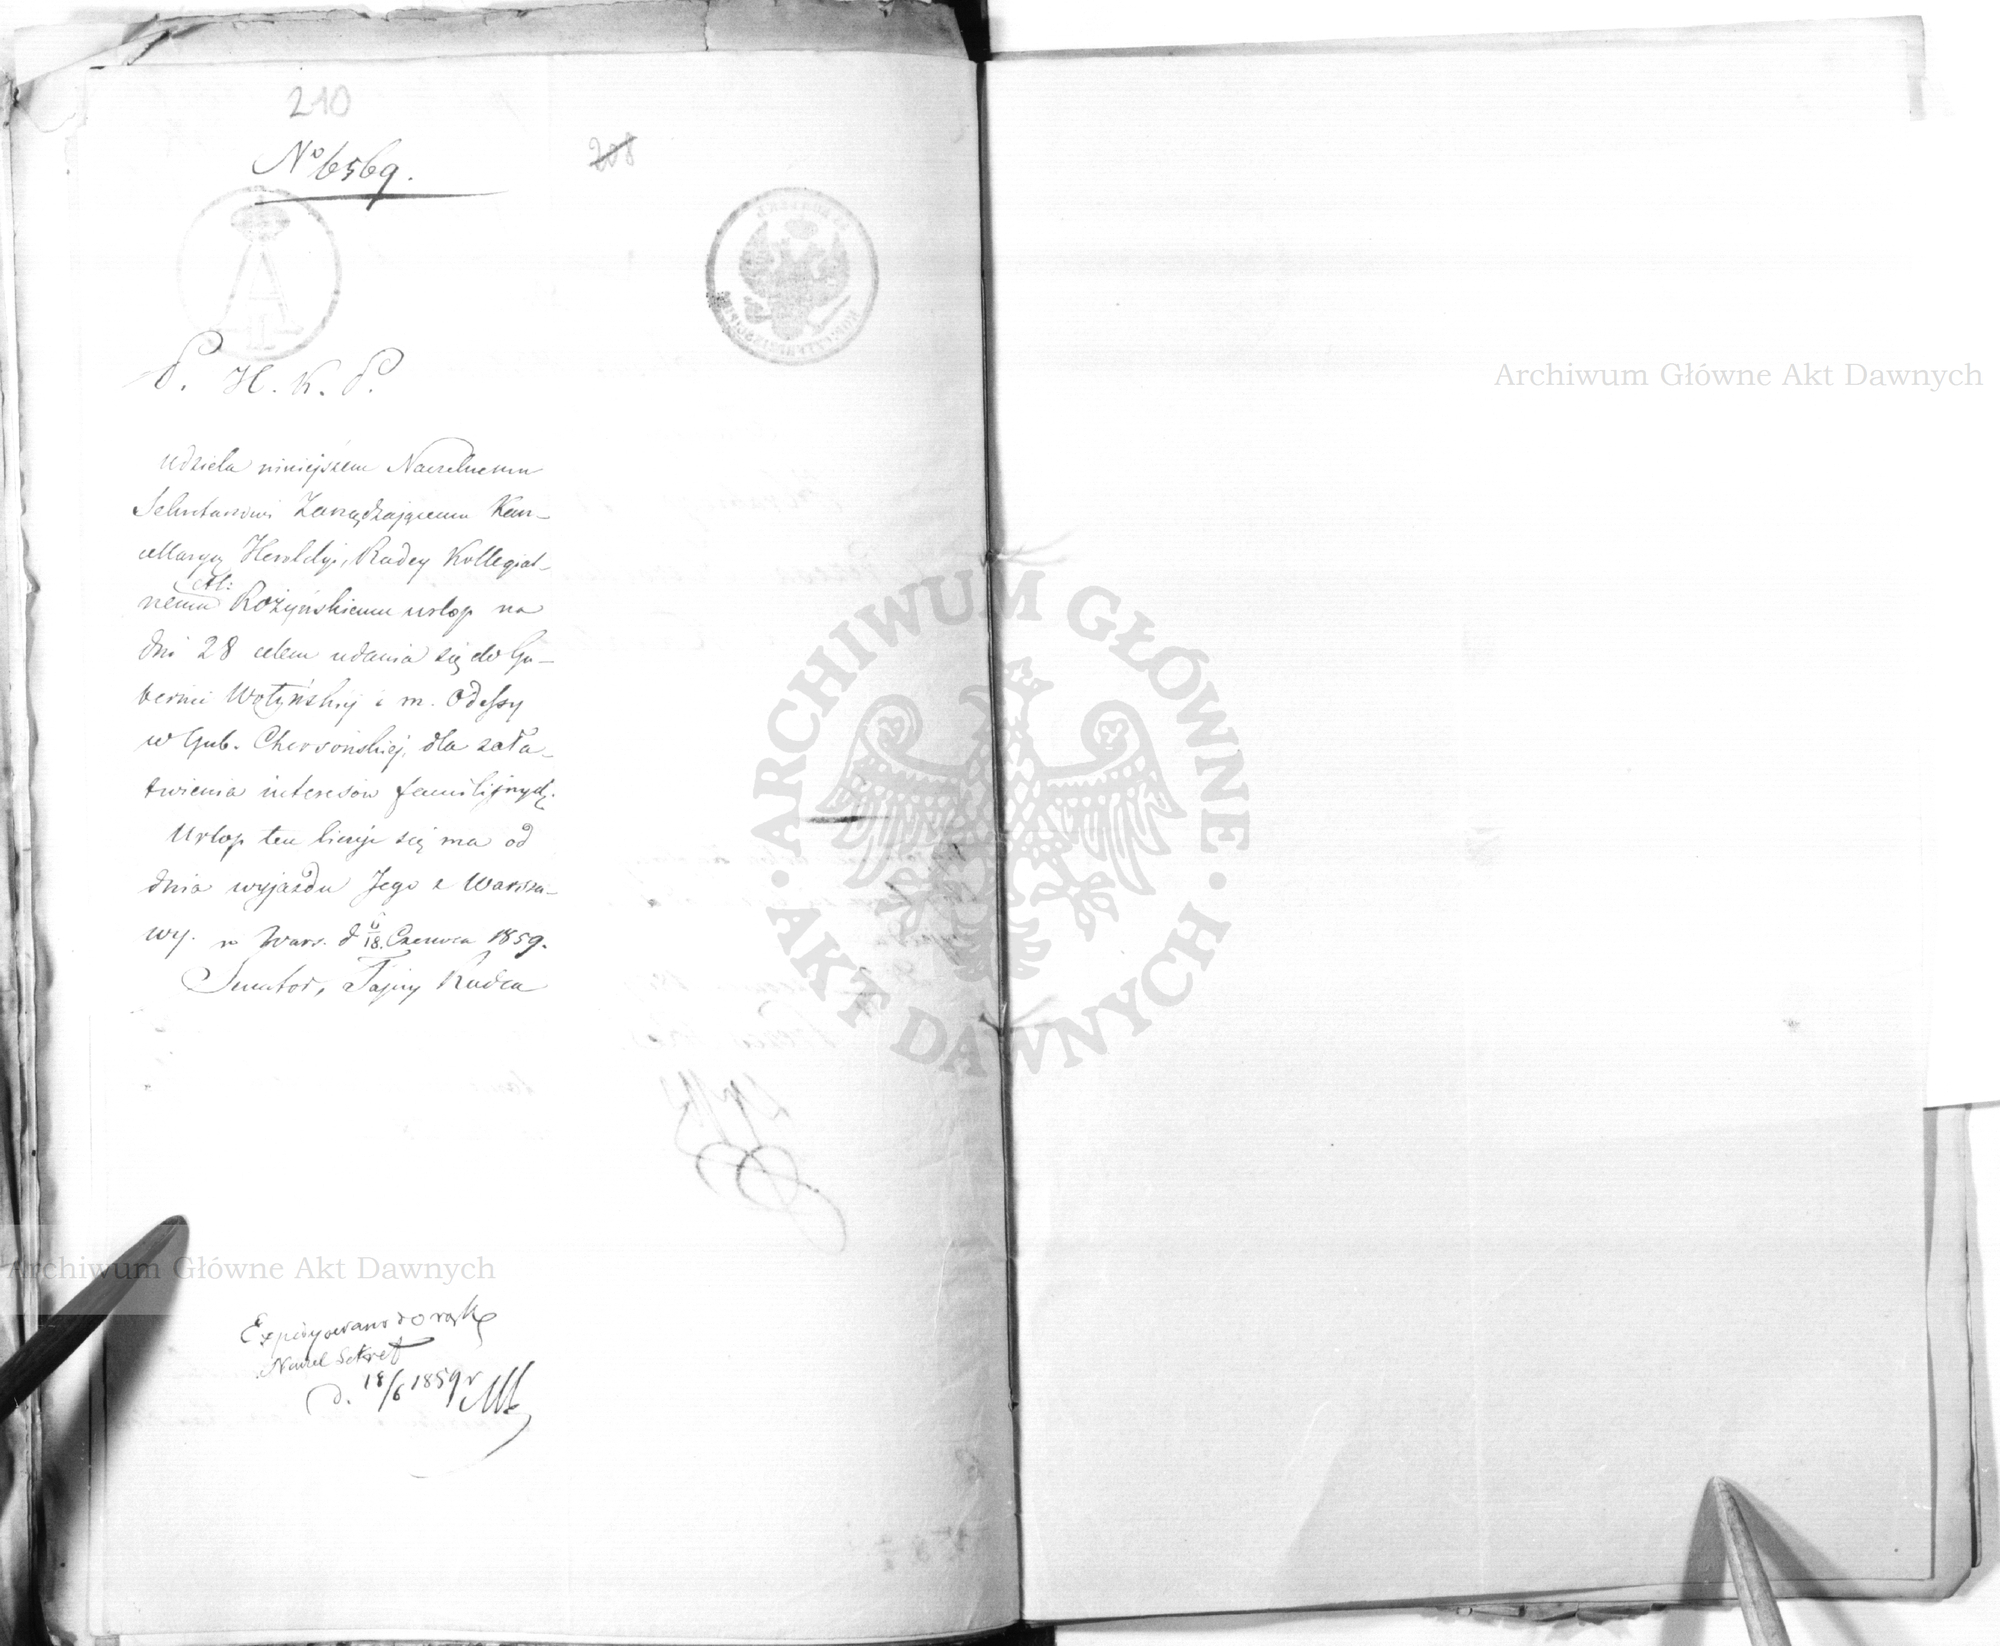 210
208
No 6569.
P. H. K. P.
udziela niniejszem Naczelnemu
Sekretarzowi Zarządzającemu Kan-
cellaryą Heroldyi, Radcy Kollegial-
nemu Al: Rożyńskiemu urlop na
dni 28 celem udania się do Gu-
bernii Wołyńskiej i m. Odessy
w Gub. Chersońskiej, dla zała-
twienia interesów familijnych.
Urlop ten liczyć się ma od
dnia wyjazdu Jego z Warsza-
wy. w Wars. d 6/18. Czerwca 1859.
Senator, Tajny Radca
Expedyowano do rąk
Naczel Sekret
d. 18/6 1859 r
Archiwum Główne Akt Dawnych
Archiwum Główne Akt Dawnych
ARCHIWUM GŁÓWNE
AKT DAWNYCH